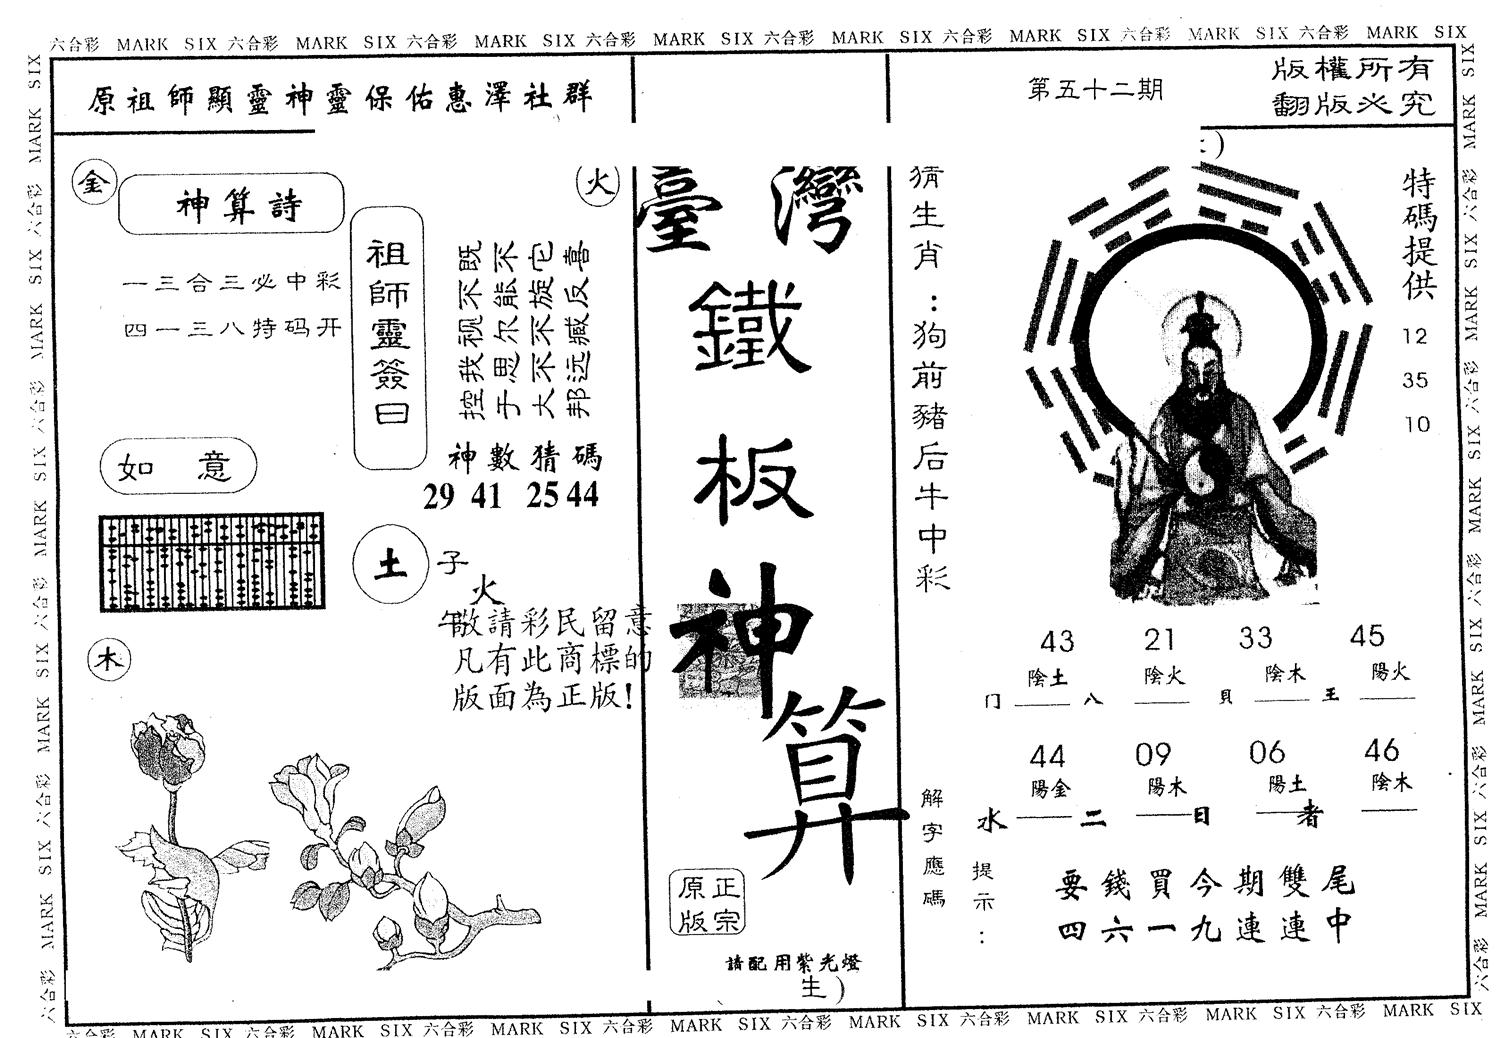 六合彩 MARK SIX 六合彩 MARK SIX 六合彩 MARK SIX 六合彩 MARK SIX 六合彩 MARK SIX 六合彩 MARK SIX 六合彩 MARK SIX 六合彩 MARK SIX
原祖師顯靈神靈保佑惠澤社群
第五十二期
版權所有
翻版必究
金
神算詩
一三合三必中彩
四一三八特码开
火
祖師靈簽曰
喜反臧远邦
它旋不不大
不能尔思于
既不视我控
神數猜碼
29 41 25 44
如意
土
子
火
午
敬請彩民留意
凡有此商標的
版面為正版!
木
臺灣
鐵板神算
正宗
原版
請配用紫光燈
生)
猜生肖:狗前豬后牛中彩
特碼提供
12
35
10
43 21 33 45
陰土 陰火 陰木 陽火
门 八 貝 王
44 09 06 46
陽金 陽木 陽土 陰木
水 二 日 者
解字應碼
提示:
要錢買今期雙尾
四六一九連連中
六合彩 MARK SIX 六合彩 MARK SIX 六合彩 MARK SIX 六合彩 MARK SIX 六合彩 MARK SIX 六合彩 MARK SIX 六合彩 MARK SIX 六合彩 MARK SIX